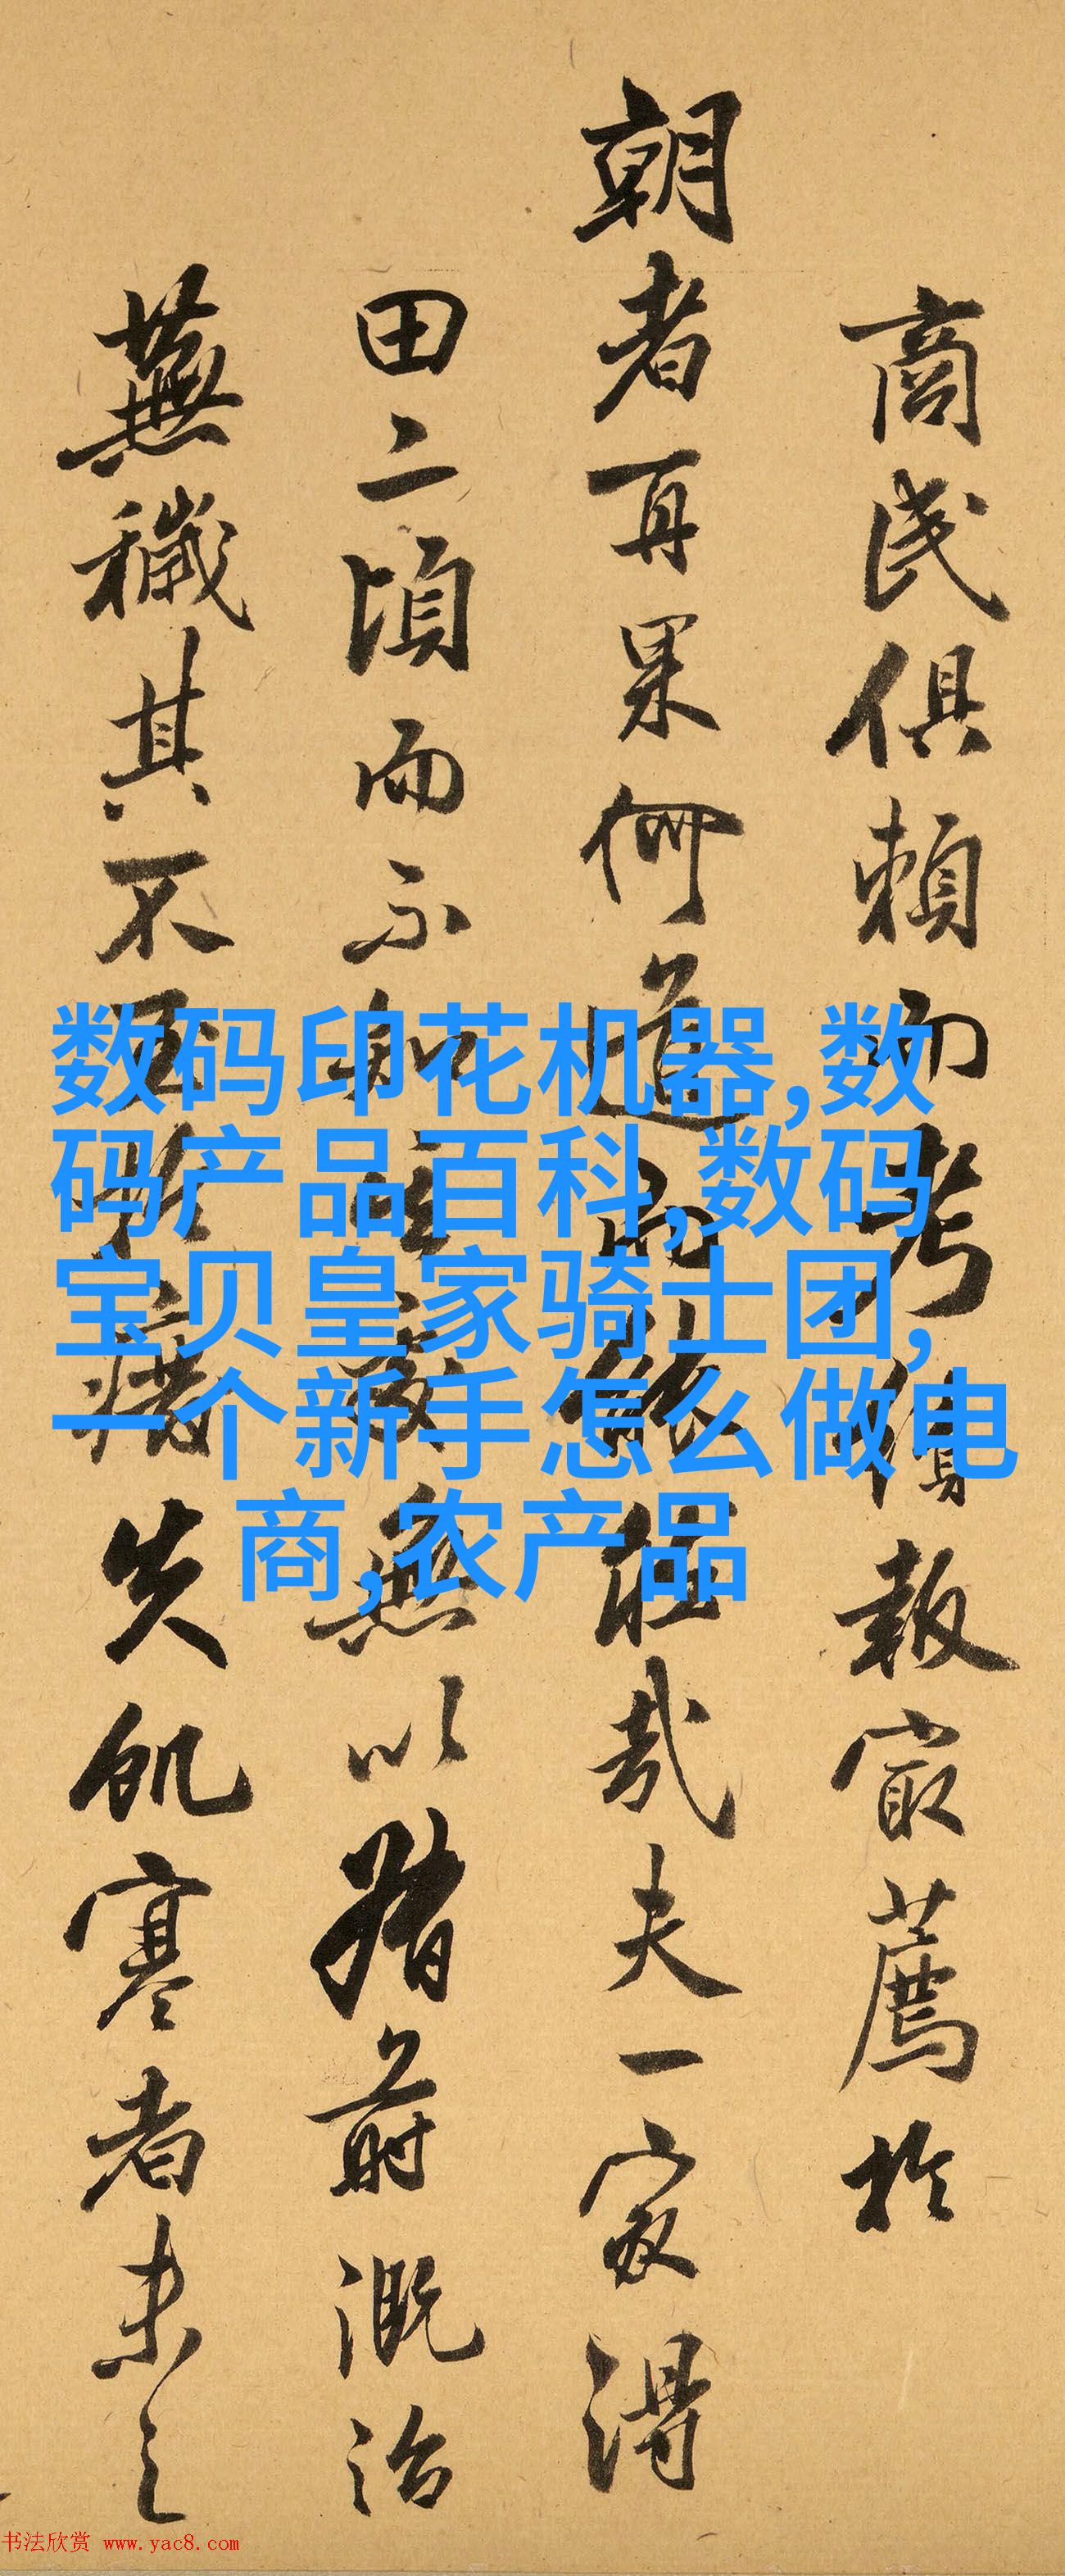 商民俱頼而考績報最薦於
朝者再果何道而能
哉夫一家得
田二頃而不知
無以
前溉治
蕪穢其不
失飢寒者未之
数码印花机器,数
码产品百科,数码
宝贝皇家骑士团,
一个新手怎么做电
商,农产品
书法欣赏 www.yac8.com